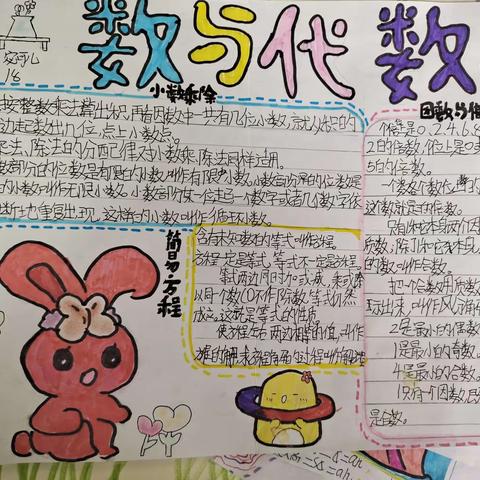 数与代数
好儿
18
小数乘除
按整数乘法算出积,再看因数中一共有几位小数,就从积的
边起数出几位,点上小数点。
乘法、除法的分配律对小数乘、除法同样适用。
数部分的位数是有限的小数叫作有限小数。小数部分的位数是
的小数叫作无限小数。小数部分某一位起一个数字或者几个数字依
断地重复出现,这样的小数叫作循环小数。
简易方程
含有未知数的等式叫作方程。
方程一定是等式,等式不一定是方程。
等式两边同时加或减、乘或除
以同一个数(0不作除数),等式仍然
成立。这就是等式的性质。
使方程左右两边相等的值,叫作
方程的解。求方程的解的过程叫作解方程
因数与倍
个位是0、2、4、6、8
2的倍数,个位上是0或
5的倍数。
一个数各个数位上的
这个数就是3的倍数。
只有1和本身两个因
质数,除了1和它本身
的数叫作合数。
把一个合数用质数
来,叫作分解
2是最小的偶数
1是最小的奇数
4是最小的合数
1只有一个因数,既
是合数。
=ah